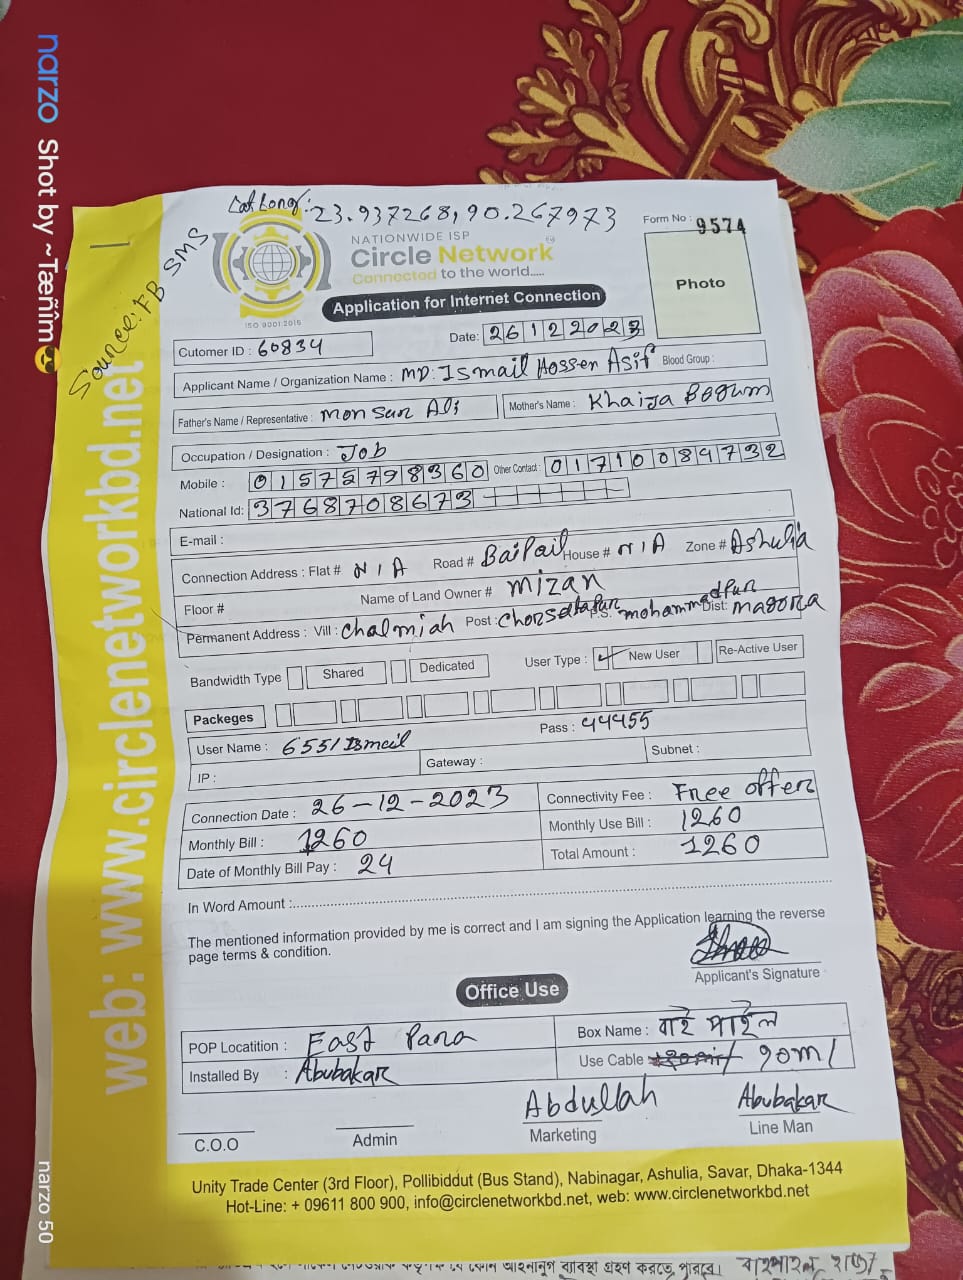 Lat Long: 23.937268, 90.267973
Source: FB SMS
NATIONWIDE ISP
Circle Network
Connected to the world.....
ISO 9001:2015
Form No : 9574
Photo
Application for Internet Connection
Cutomer ID : 60834
Date: 26122023
Applicant Name / Organization Name : MD: Ismail Hossen Asif Blood Group :
Father's Name / Representative : Monsur Ali Mother's Name : Khaija Begum
Occupation / Designation : Job
Mobile : 01575798360 Other Contact : 01710084732
National Id: 3768708673
E-mail :
Connection Address : Flat # N/A Road # Baipail House # N/A Zone # Ashulia
Floor # Name of Land Owner # Mizan
Permanent Address : Vill : Chalmiah Post : P.S. mohammadpur Dist: magora
Bandwidth Type Shared Dedicated User Type : ✓ New User Re-Active User
Packeges
User Name : 6551Ismail Pass : 44455
IP : Gateway : Subnet :
Connection Date : 26-12-2023 Connectivity Fee : Free offer
Monthly Bill : 1260 Monthly Use Bill : 1260
Date of Monthly Bill Pay : 24 Total Amount : 1260
In Word Amount :
The mentioned information provided by me is correct and I am signing the Application learning the reverse
page terms & condition.
Applicant's Signature
Office Use
POP Locatition : East Para Box Name : বাই পাইল
Installed By : Abubakar Use Cable 90m/
Abdullah Abubakar
C.O.O Admin Marketing Line Man
Unity Trade Center (3rd Floor), Pollibiddut (Bus Stand), Nabinagar, Ashulia, Savar, Dhaka-1344
Hot-Line: + 09611 800 900, info@circlenetworkbd.net, web: www.circlenetworkbd.net
web: www.circlenetworkbd.net
যে কোন আইনানুগ ব্যাবস্থা গ্রহণ করতে পারবে।
narzo Shot by ~Tæñîm😎
narzo 50